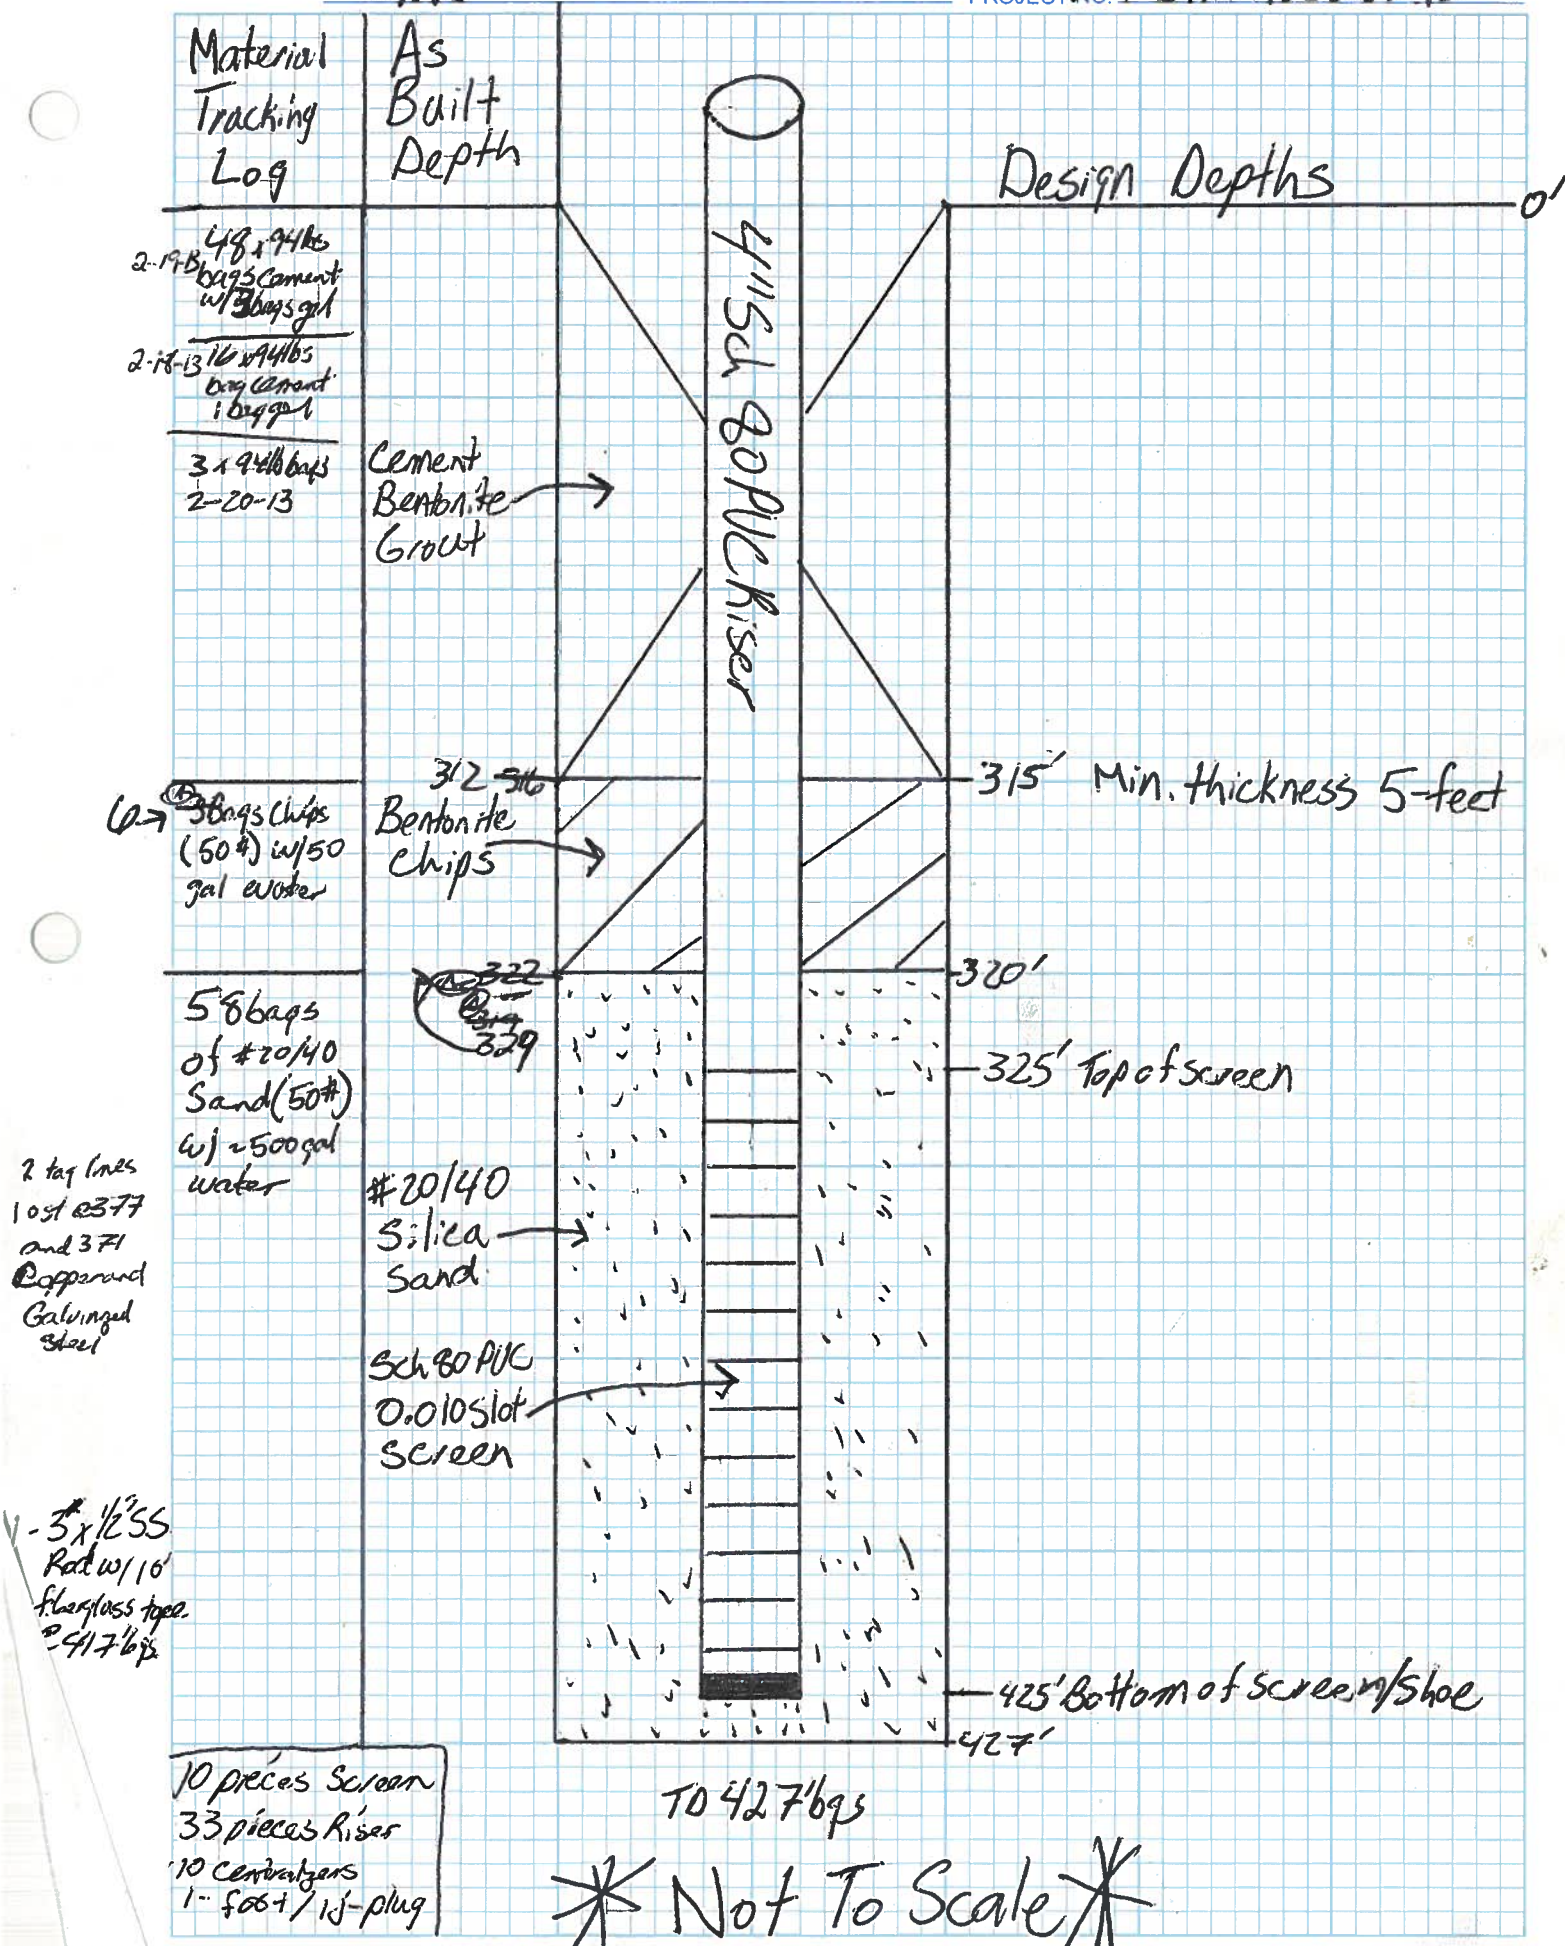 PROJECT NO.
Material
Tracking
Log
As
Built
Depth
Design Depths
0'
48 x 94lbs
bags cement
w/ bags gel
2-18-13 16 x 94lbs
bag cement
1 bag gel
3 x 94lb bags
2-20-13
Cement
Bentonite
Grout
4" Sch 80 PVC Riser
312 316
315' Min. thickness 5-feet
6→ 3 Bags Chips
(50#) w/50
gal water
Bentonite
Chips
322
319
329
320'
58 bags
of #20/40
Sand (50#)
w/ ~500 gal
water
325' Top of screen
2 tag lines
lost @377
and 371
Copper and
Galvinzed
Steel
#20/40
Silica
Sand
Sch 80 PVC
0.010 Slot
Screen
- 3" x 1/2" SS
Rod w/ 10'
fiberglass tape
@ 417' bgs
425' Bottom of screen/Shoe
427'
10 pieces Screen
33 pieces Riser
10 Centralzers
1- foot / -plug
TD 427' bgs
* Not To Scale *